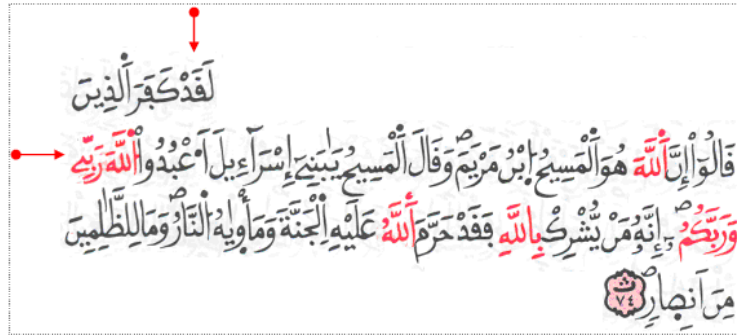 لَقَدْ كَفَرَ اَ۬لذِينَ
قَالُوٓاْ إِنَّ اَ۬للَّهَ هُوَ اَ۬لْمَسِيحُ اُ۪بْنُ مَرْيَمَۖ وَقَالَ اَ۬لْمَسِيحُ يَٰبَنِےٓ إِسْرَآءِيلَ اَ۟عْبُدُواْ اُ۬للَّهَ رَبِّے
وَرَبَّكُمُۥٓۖ إِنَّهُۥ مَنْ يُّشْرِكْ بِاللَّهِ فَقَدْ حَرَّمَ اَ۬للَّهُ عَلَيْهِ اِ۬لْجَنَّةَ وَمَأْو۪يٰهُ اُ۬لنَّارُۖ وَمَا لِلظَّٰلِمِينَ
مِنَ اَنصِارٖۖ ث ٧٤